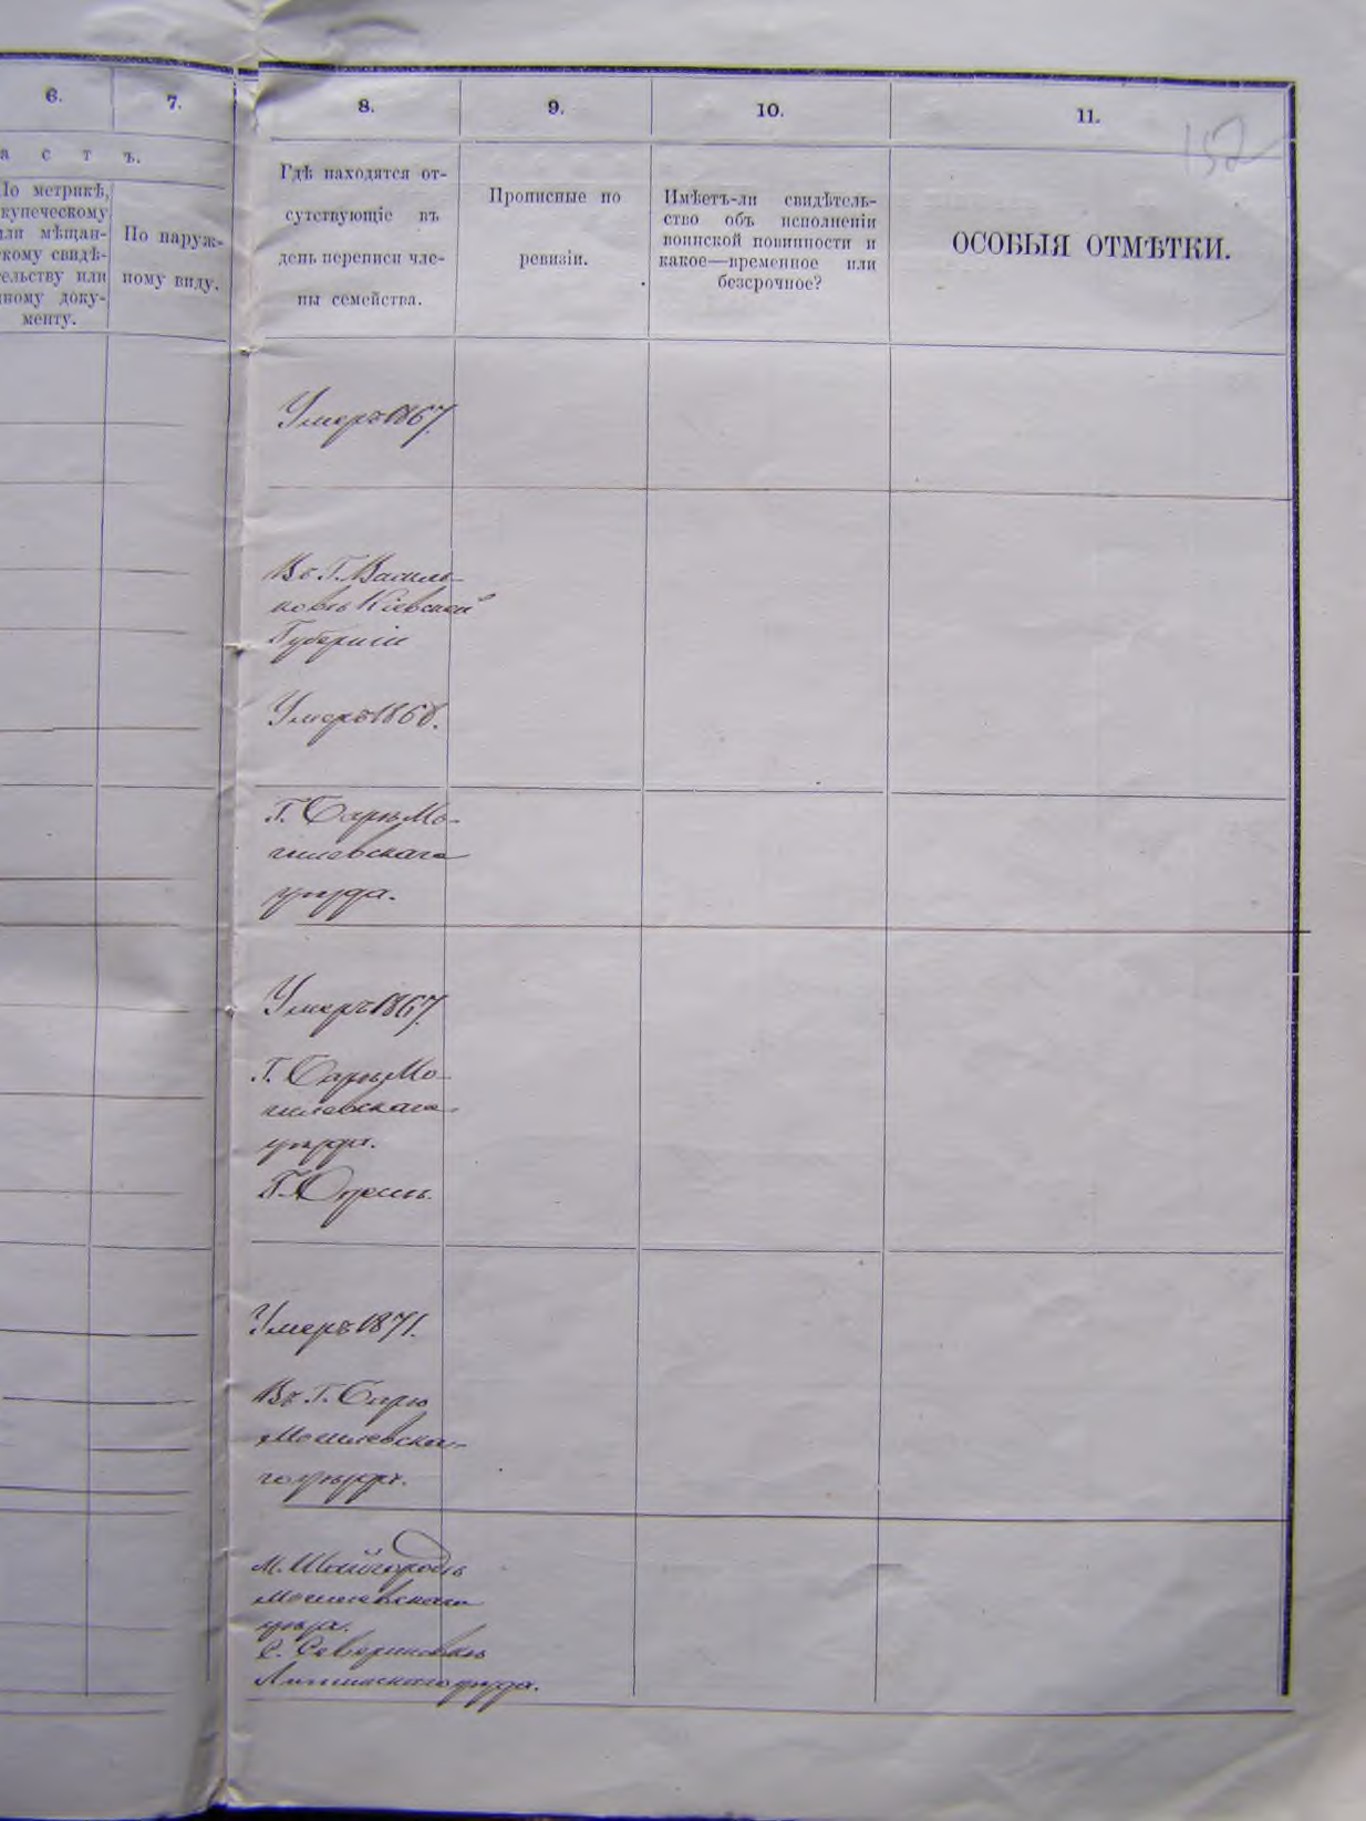 6.
7.
8.
9.
10.
11.
152
а с т ъ.
По метрикѣ,
купеческому
или мѣщан-
скому свидѣ-
тельству или
иному доку-
менту.
По наруж-
ному виду.
Гдѣ находятся от-
сутствующіе въ
день переписи чле-
ны семейства.
Прописные по
ревизіи.
Имѣетъ-ли свидѣтель-
ство объ исполненіи
воинской повинности и
какое—временное или
безсрочное?
ОСОБЫЯ ОТМѢТКИ.
Умеръ 1867.
Въ Г. Василь-
ковѣ Кіевской
Губерніи
Умеръ 1868.
Г. Барѣ Мо-
гилевскаго
уѣзда.
Умеръ 1867.
Г. Барѣ Мо-
гилевскаго
уѣзда.
Г.
Умеръ 1871.
Въ Г. Барѣ
Могилевска-
го уѣзда.
М. Шайгородѣ
Могилевскаго
уѣзда.
С. Севериновкѣ
Литинскаго уѣзда.